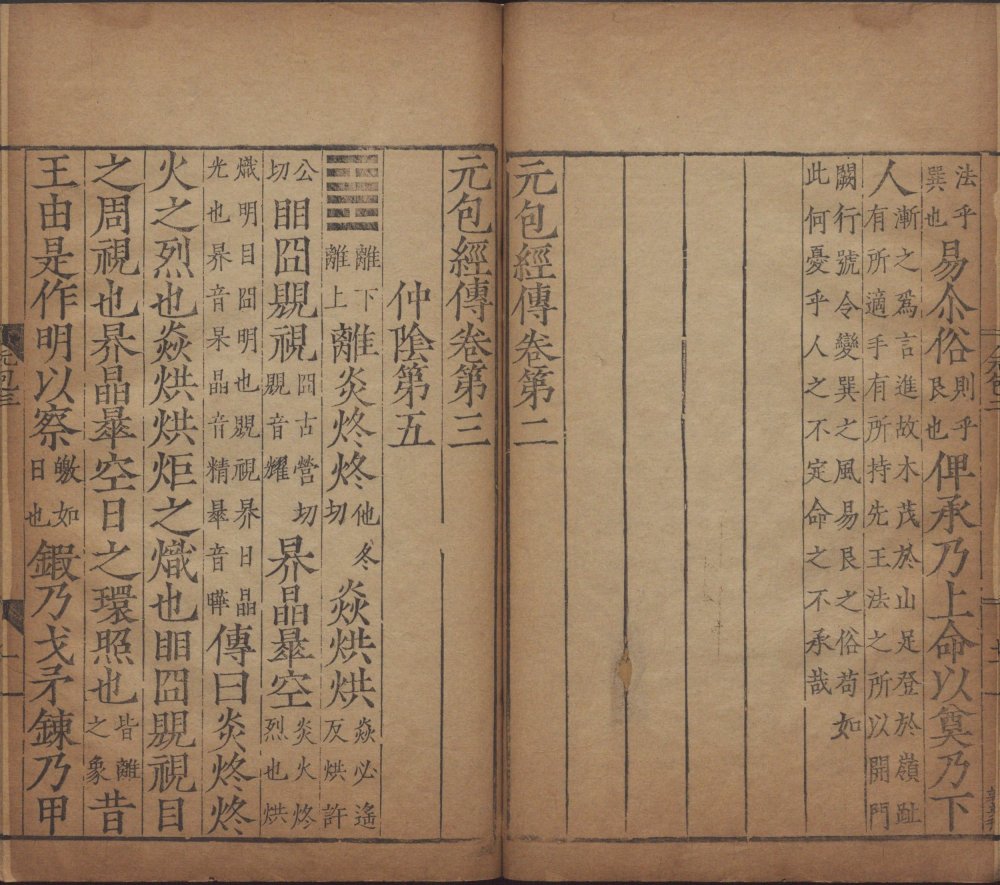 法乎巽也易尒俗則乎艮也俾承乃上命以奠乃下
人漸之爲言進故木茂於山足登於嶺趾有所適手有所持先王法之所以開門
闢行號令變巽之風易艮之俗苟如此何憂乎人之不定命之不承哉
元包經傳卷第二
元包經傳卷第三
仲陰第五
離下離上離炎炵炵他冬切焱烘烘焱必遙反烘許
公切眀囧覞視囧古營切覞音耀昦晶曅空炎火炵烈也烘
熾明目囧明也覞視昦日晶光也昦音杲晶音精曅音曄傳曰炎炵炵
火之烈也焱烘烘炬之熾也眀囧覞視目
之周視也昦晶曅空日之環照也皆離之象昔
王由是作明以察皦如日也鍜乃戈矛鍊乃甲
元包三
一